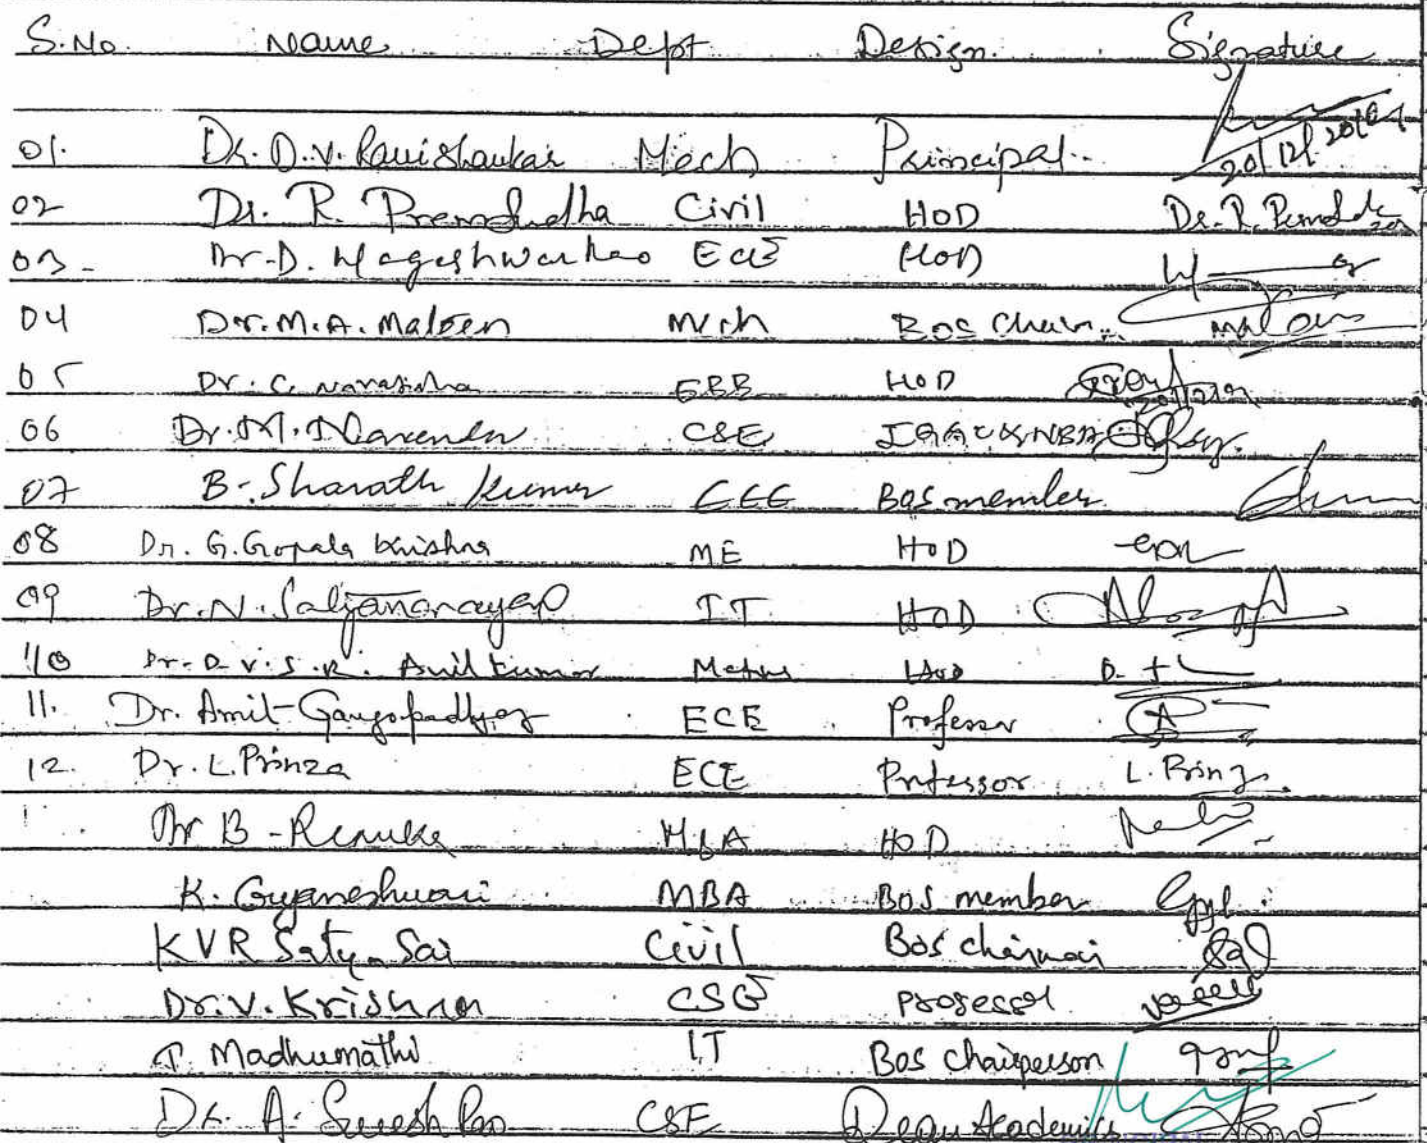 S.No. Name Dept Design. Signature
01. Dr. D.V. Ravishankar Mech Principal
02 Dr. R. Premsudha Civil HOD
03 - Dr. D. Nageshwar Rao ECE HOD
04 Dr. M.A. Maleen Mech BOS Chair
05 Dr. C. Narasimha EEE HOD
06 Dr. M. Narender CSE
07 B. Sharath Kumar EEE BOS member
08 Dr. G. Gopala Krishna ME HOD
09 Dr. N. Satyanarayana IT HOD
10 Dr. D.V.S.R. Anil Kumar Maths HOD
11. Dr. Amit Gangopadhyay ECE Professor
12. Dr. L. Prinza ECE Professor L. Prinza
Dr B - Renuka HOD
K. Gyaneshwari MBA BOS member
KVR Satya Sai Civil BOS chairman
Dr. V. Krishna CSE Professor
T. Madhumathi I.T BOS Chairperson
Dr. A. Suresh Rao CSE Dean Academics